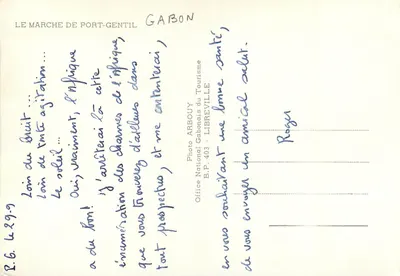 LE MARCHE DE PORT-GENTIL
GABON
P.G. le 29.9
Loin du bruit...
Loin de toute agitation...
Le soleil...
Oui, vraiment, l'Afrique
a du bon!
J'arrêterai là cette
énumération des charmes de l'Afrique,
que vous trouverez d'ailleurs dans
tout prospectus, et me contenterai,
en vous souhaitant une bonne santé,
de vous envoyer un amical salut.
Roger
Photo ARBOUY
Office National Gabonais du Tourisme
B.P. 403 - LIBREVILLE